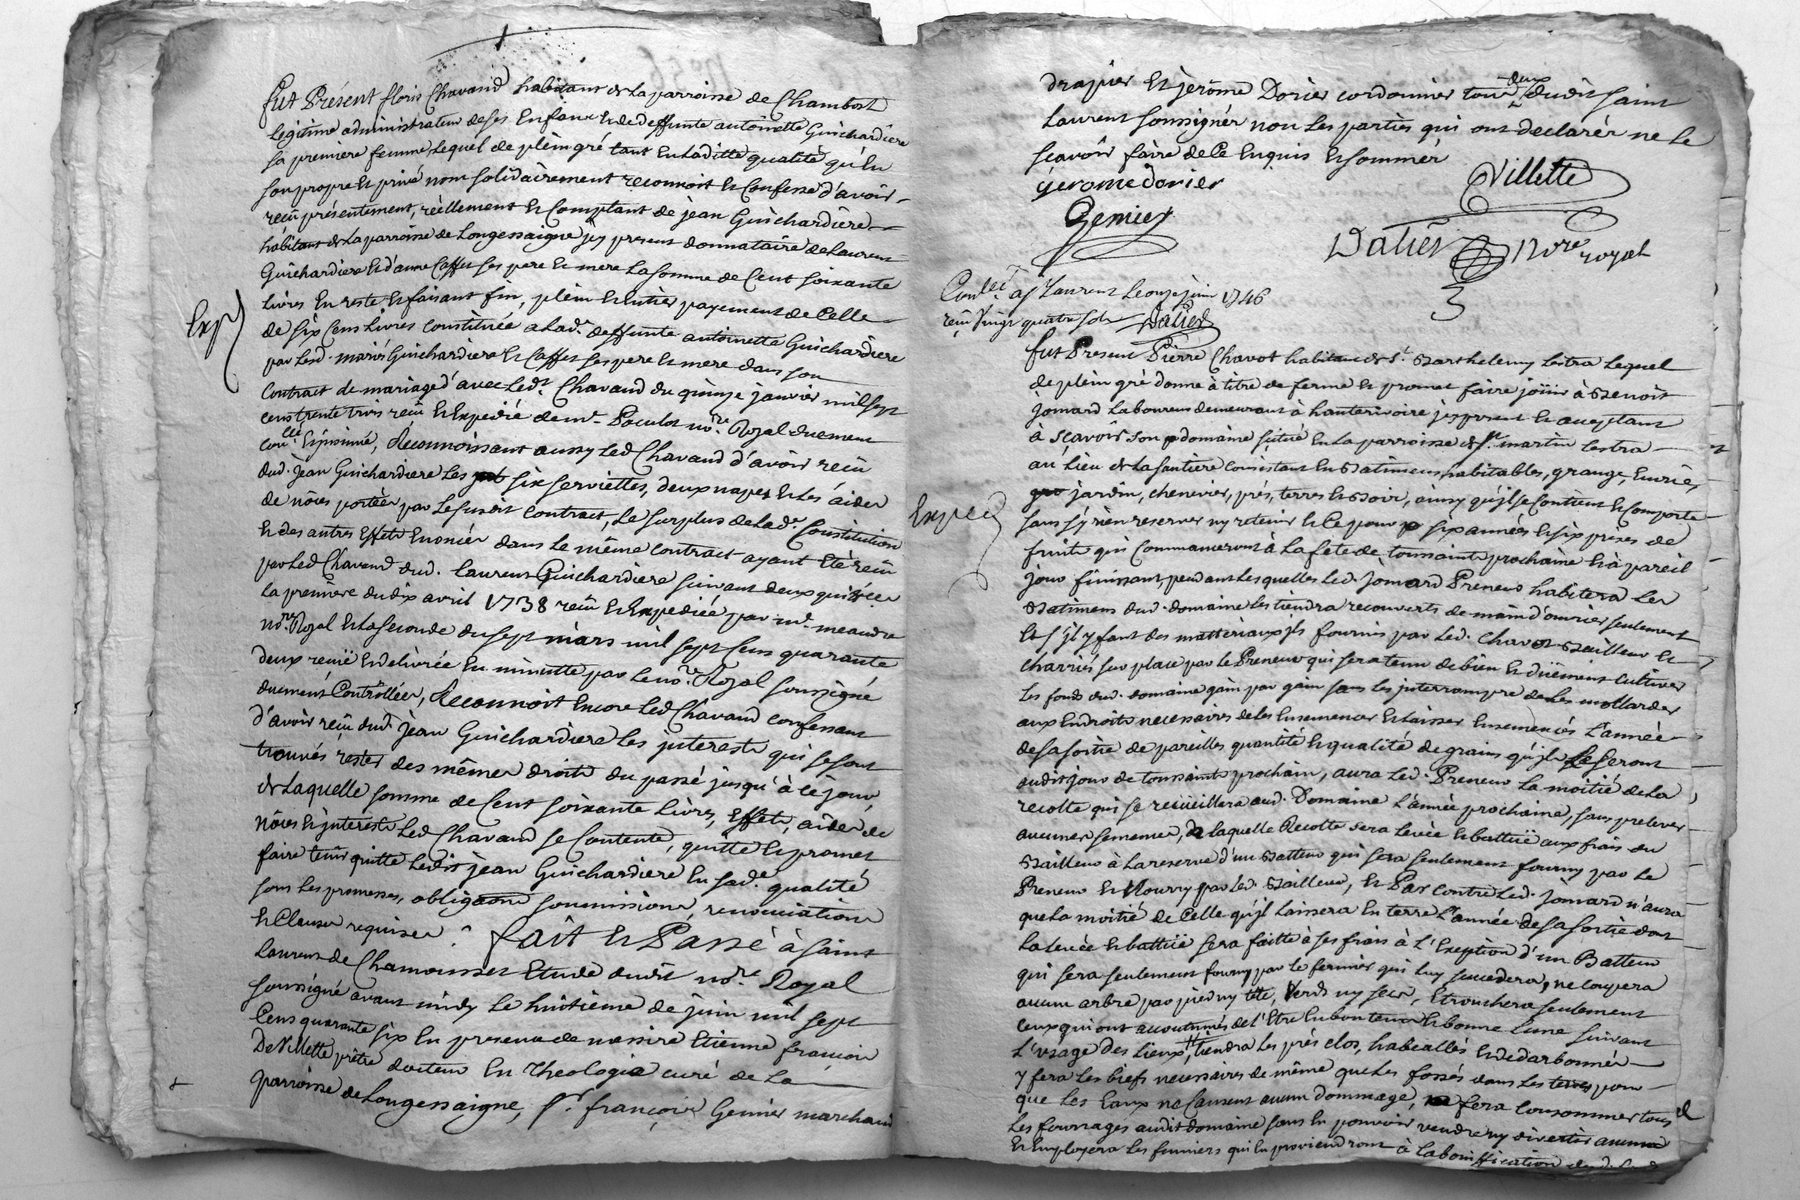 fut Présent floris Chavand habitant de la parroisse de Chambost
legitime administrateur de ses Enfans et de deffunte antoinette Guichardiere
sa premiere femme, lequel de plein gré tant en laditte qualité qu'en
son propre et privé nom solidairement reconnoit et confesse d'avoir
reçu présentement, réellement et Comptant de jean Guichardiere
habitant de la parroisse de Longessaigne jcy present donnataire de Laurent
Guichardiere et d'anne Caffet ses pere et mere la somme de Cent soixante
livres En reste et faisant fin, plein et entier payement de Celle
Exp
de six Cens livres constituée a lad.e deffunte antoinette Guichardiere
par lesd. mariés Guichardiere et Caffet ses pere et mere dans son
Contract de mariage d'avec led.t Chavand du quinze janvier mil sept
cens trente trois reçu et Expedié de m.e no.re Royal duement
con.llé Insinué, Reconnoissant aussy led Chavand d'avoir reçu
dud. jean Guichardiere les six serviettes, deux napes et les aides
de nôces portées par le susdit Contract, le surplus de lad.e Constitution
et des autres Effets Enoncés dans le même contract ayant été reçu
par led Chavand dud. laurent Guichardiere suivant deux quittces
la première du dix avril 1738 reçu et Expediée par m.e meaudre
no.re Royal et la seconde du sept mars mil sept Cens quarante
deux reçuë et délivrée En minutte par le no.re Royal soussigné
duement Contrôllées, Reconnoit Encore led Chavand confessant
d'avoir reçu dud.t jean Guichardiere les interests qui se sont
trouvés restés des mêmes droits du passé jusqu'à ce jour,
de laquelle somme de Cent soixante livres, Effets, aides de
nôces et interests led Chavand se Contente, quitte et promet
faire tenir quitte ledit jean Guichardiere En sad.e qualité
sous les promesses, obligations soumissions, renonciations
et Clauses requises. fait et Passé à Saint
Laurent de Chamousset Etude dudit no.re Royal
soussigné avant midy le huitieme de juin mil sept
Cens quarante six En presence de messire Etienne françois
De Villette prêtre docteur En theologie curé de la
parroisse de Longessaigne, s.r françois Gemier marchand
drapier et jerôme Dorier cordonnier tous deux dudit Saint
Laurent soussignés non les parties qui ont declarés ne le
sçavoir faire de Ce Enquis et sommés
jerome dorier
Villette
Gemier
Dalier
no.re royal
Con.lé a s.t Laurent le onze juin 1746
reçu vingt quatre sols Dalier
fut Present Pierre Chavot habitant de s.t Barthelemy Lestra lequel
de plein gré donne à titre de ferme et promet faire joüir à Benoit
jomard laboureur demeurant à hauterivoire jcy present et acceptant
à sçavoir son domaine situé En la parroisse de s.t martin Lestra
au Lieu de la fantiere consistant En Batimens habitables, grange, Ecuries,
jardin, chenevier, prés, terres et Bois, ainsy qu'jl se Contient et Comporte
Exped
sans s'y rien reserver ny retenir et Ce pour six années et six prises de
fruits qui Commanceront à la fete de toussaints prochaine et à pareil
jour finissant, pendant lesquelles led. jomard Preneur habitera les
Batimens dud. domaine les tiendra recouverts de main d'ouvrier seulement
Et s'jl y faut des matteriaux jls fournis par led. Chavot Bailleur et
charriés sur place par le Preneur qui sera tenu de bien et duëment cultiver
les fonds dud. domaine gain par gain sans les jnterrompre de les mottarder
aux Endroits necessaires de les Ensemencer et laisser Ensemencés l'année
de sa sortie de pareilles quantité et qualité de grains qu'jls le seront
audit jour de toussaints prochain, aura led. Preneur la moitié de la
recolte qui se reciieillera aud. Domaine l'année prochaine, sans prelever
aucunes semences, laquelle Recolte sera levée et battuë aux frais du
Bailleur à la reserve d'un Batteur qui sera seulement fourny par le
Preneur et Nourry par led. Bailleur, et Par contre led. jomard n'aura
que la moitié de Celle qu'jl laissera En terre l'année de sa sortie dont
la levée et battuë sera faitte à ses frais à l'Exeption d'un Batteur
qui sera seulement fourny par le fermier qui luy succedera, ne coupera
aucun arbre par pied ny tête, Verds ny secs, Etronchera seulement
ceux qui ont accoutumés de l'Etre En bon tems et bonne Lune suivant
l'usage des Lieux, tiendra les prés clos, habeallés et dedarbonnés
y fera les biefs necessaires de même que les fossés dans les terres pour
que les Eaux ne Causent aucun dommage, fera Consommer tous
les fourrages audit domaine sans En pouvoir vendre ny divertir aucuns
Et Employera les fumiers qui En proviendront à la bonnification